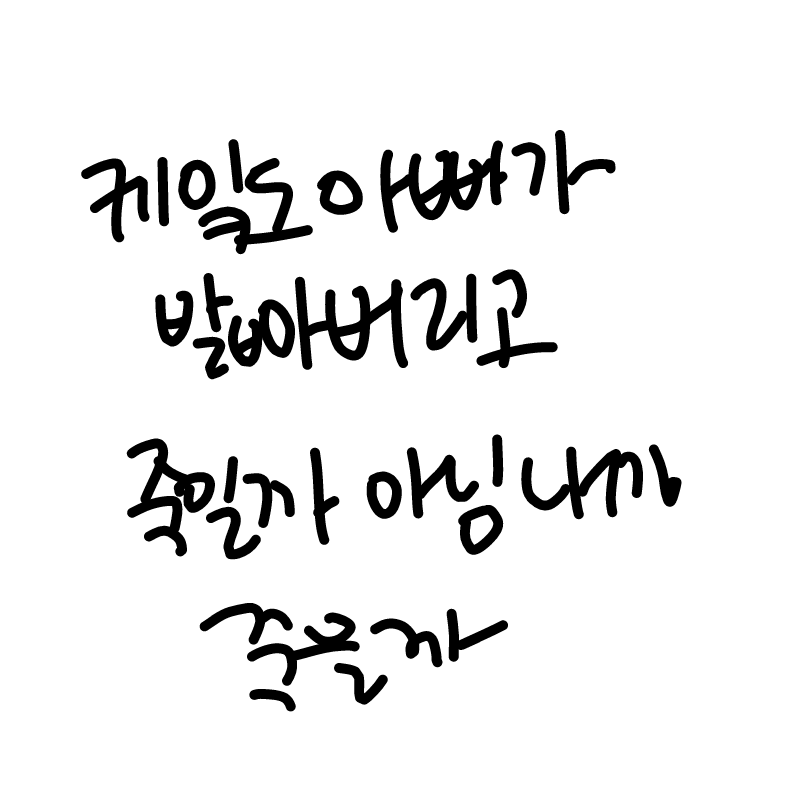 케잌도 아빠가
밟아버리고
죽일까 아님 나가
죽을까